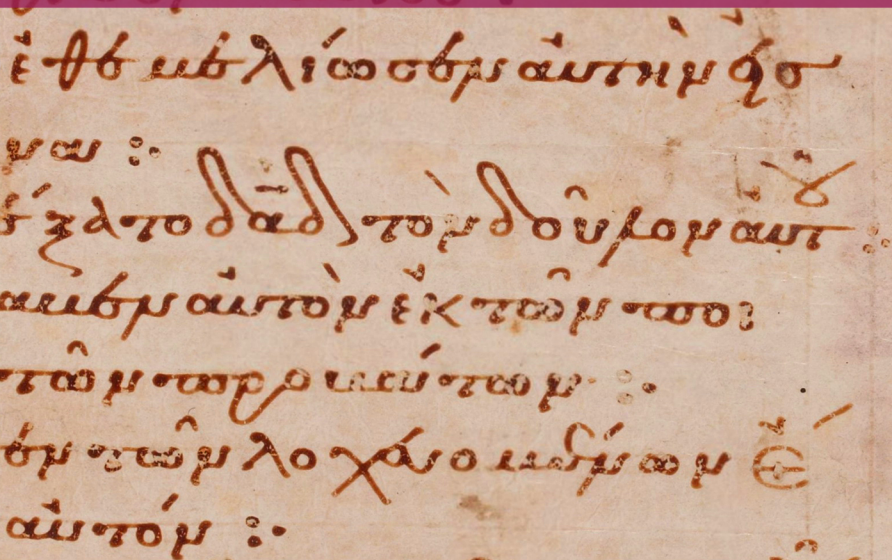 ἐθεμελίωσεν αὐτὴν εἰσ
να :·
ξατο δᾱδ τὸν δοῦλον αὐτοῦ :
αβεν αὐτὸν ἐκ τῶν ποι
τῶν προβάτων :·
εν τῶν λοχευομένων ἔ
αὐτόν :·